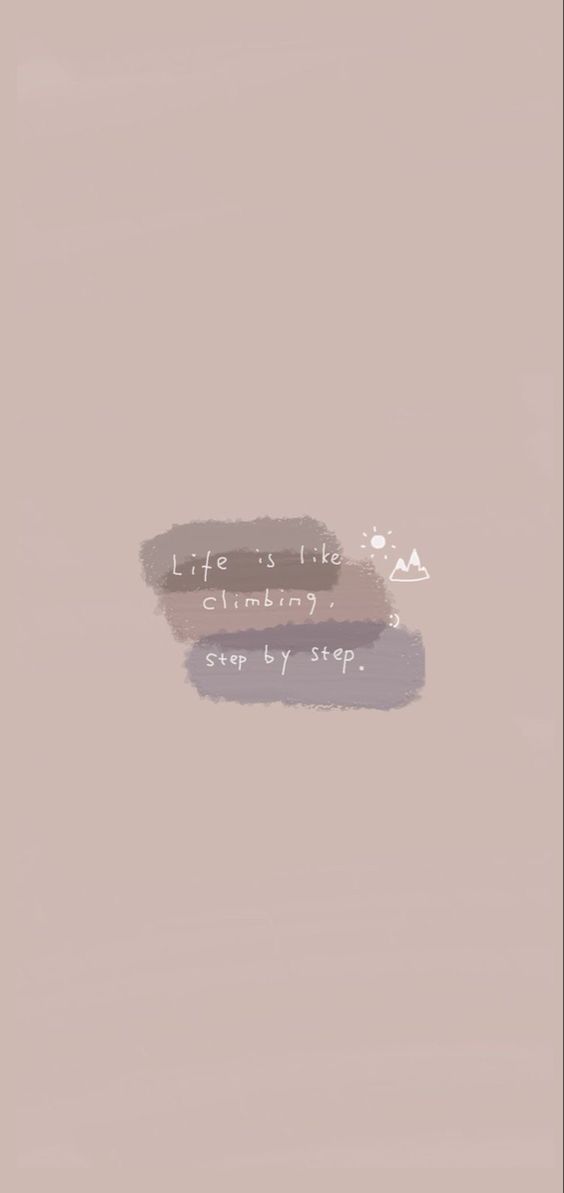 Life is like
climbing,
:)
step by step.